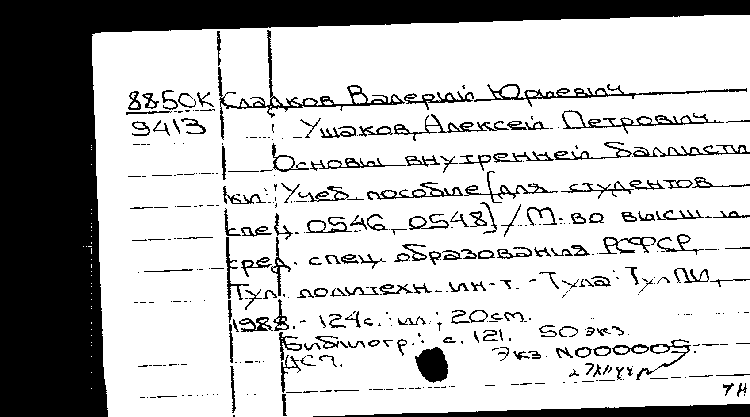 8850К Сладков, Валерий Юрьевич,
9413 Ушаков, Алексей Петрович
Основы внутренней баллисти
ки: Учеб пособие [для студентов
спец. 0546, 0548] / М-во высш и
сред. спец. образования РСФСР,
Тул. политехн. ин-т. - Тула: ТулПИ,
1988. - 124с.: ил.; 20см.
Библиогр.: с. 121. 50 экз.
ДСП. Экз. N000005.